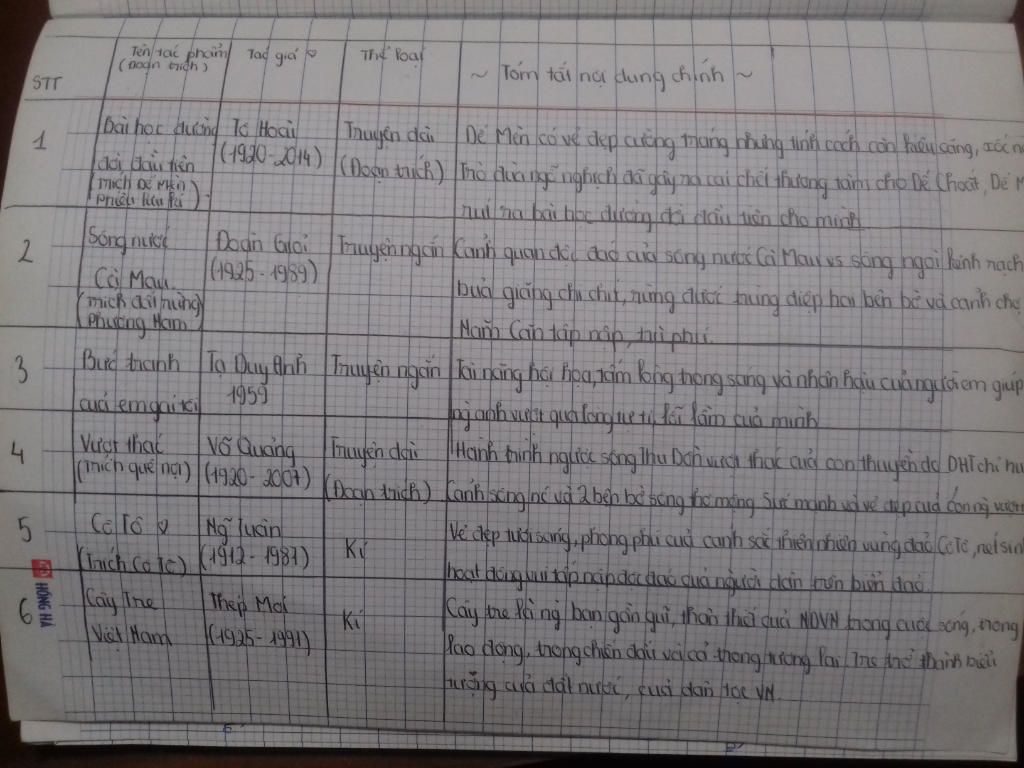 STT Tên tác phẩm (Đoạn trích) Tác giả ♡ Thể loại ~ Tóm tắt nd dung chính ~
1 Bài học đường Tô Hoài Truyện dài Dế Mèn có vẻ đẹp cường tráng nhưng tính cách còn kiêu căng, xốc n
đời đầu tiên (1920-2014) (Đoạn trích) Trò đùa ngỗ nghịch đã gây ra cái chết thương tâm cho Dế Choắt, Dế M
(trích Dế Mèn phiêu lưu kí) rút ra bài học đường đời đầu tiên cho mình
2 Sông nước Đoàn Giỏi Truyện ngắn Cảnh quan độc đáo của sông nước Cà Mau vs sông ngòi kênh rạch
Cà Mau (1925-1989) bủa giăng chi chít, rừng đước trùng điệp hai bên bờ và cảnh chợ
(trích đất rừng phương Nam) Năm Căn tấp nập, trù phú.
3 Bức tranh Tạ Duy Anh Truyện ngắn Tài năng hội họa, tâm lòng trong sáng và nhân hậu của người em giúp
của em gái tôi 1959 ng anh vượt qua lòng tự ti, lỗi lầm của mình
4 Vượt thác Võ Quảng Truyện dài Hành trình ngược sông Thu Bồn vượt thác của con thuyền do DHT chỉ hu
(trích quê nội) (1920-2007) (Đoạn trích) Cảnh sông nc và 2 bên bờ sông thơ mộng Sức mạnh và vẻ đẹp của con ng vượt
5 Cô Tô ♡ Ngũ tuân Kí Vẻ đẹp tươi sáng, phong phú của cảnh sắc thiên nhiên vùng đảo Cô Tô, nét sin
(trích Cô Tô) (1912-1987) hoạt động vui tấp nập độc đáo của người dân trên biển đảo.
6 Cây Tre Thép Mới Kí Cây tre là ng bạn gần gũi, thân thiết của NDVN trong cuộc sống, trong
Việt Nam (1925-1991) lao động, trong chiến đấu và cả trong tương lai, Tre trở thành biểu
tượng của đất nước, của dân tộc VN.
HỒNG HÀ